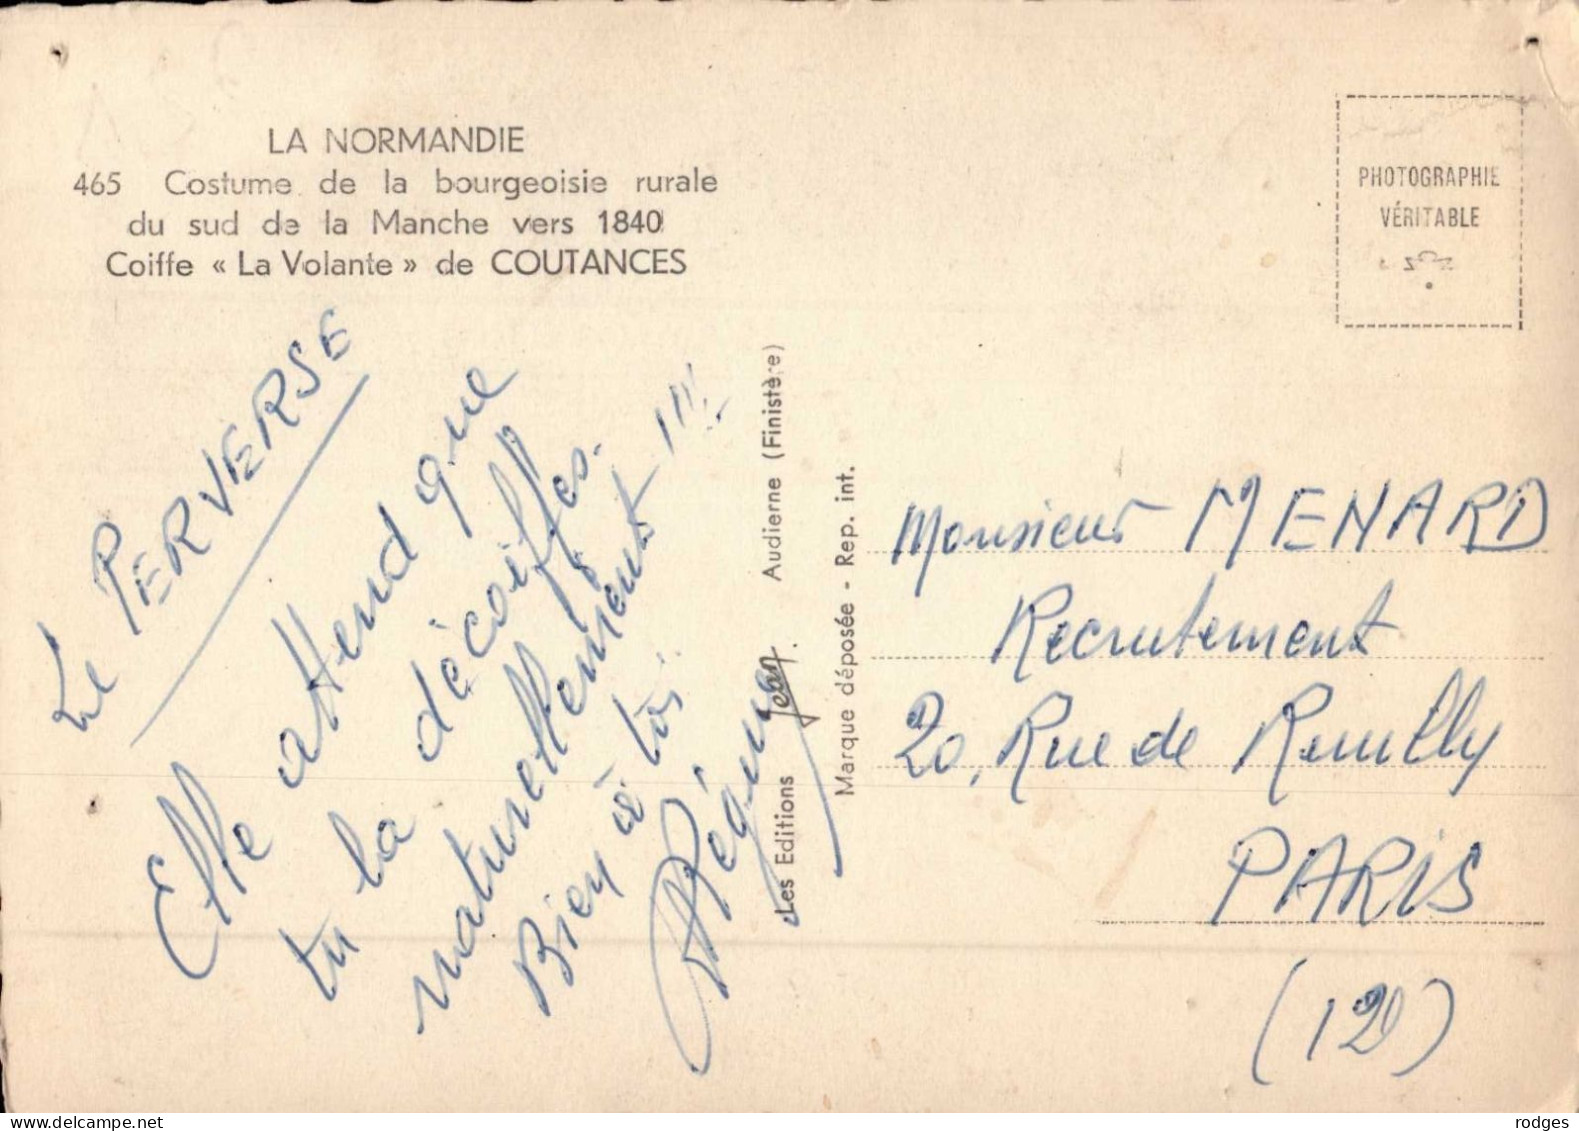 LA NORMANDIE
465 Costume de la bourgeoisie rurale
du sud de la Manche vers 1840
Coiffe « La Volante » de COUTANCES
PHOTOGRAPHIE
VÉRITABLE
Le PERVERSE
Elle attend que
tu la décoiffes.
naturellement !!!
Bien à toi
Les Editions Jean Audierne (Finistère)
Marque déposée - Rep. int.
Monsieur MENARD
Recrutement
20, Rue de Reuilly
PARIS
(12)
rodges